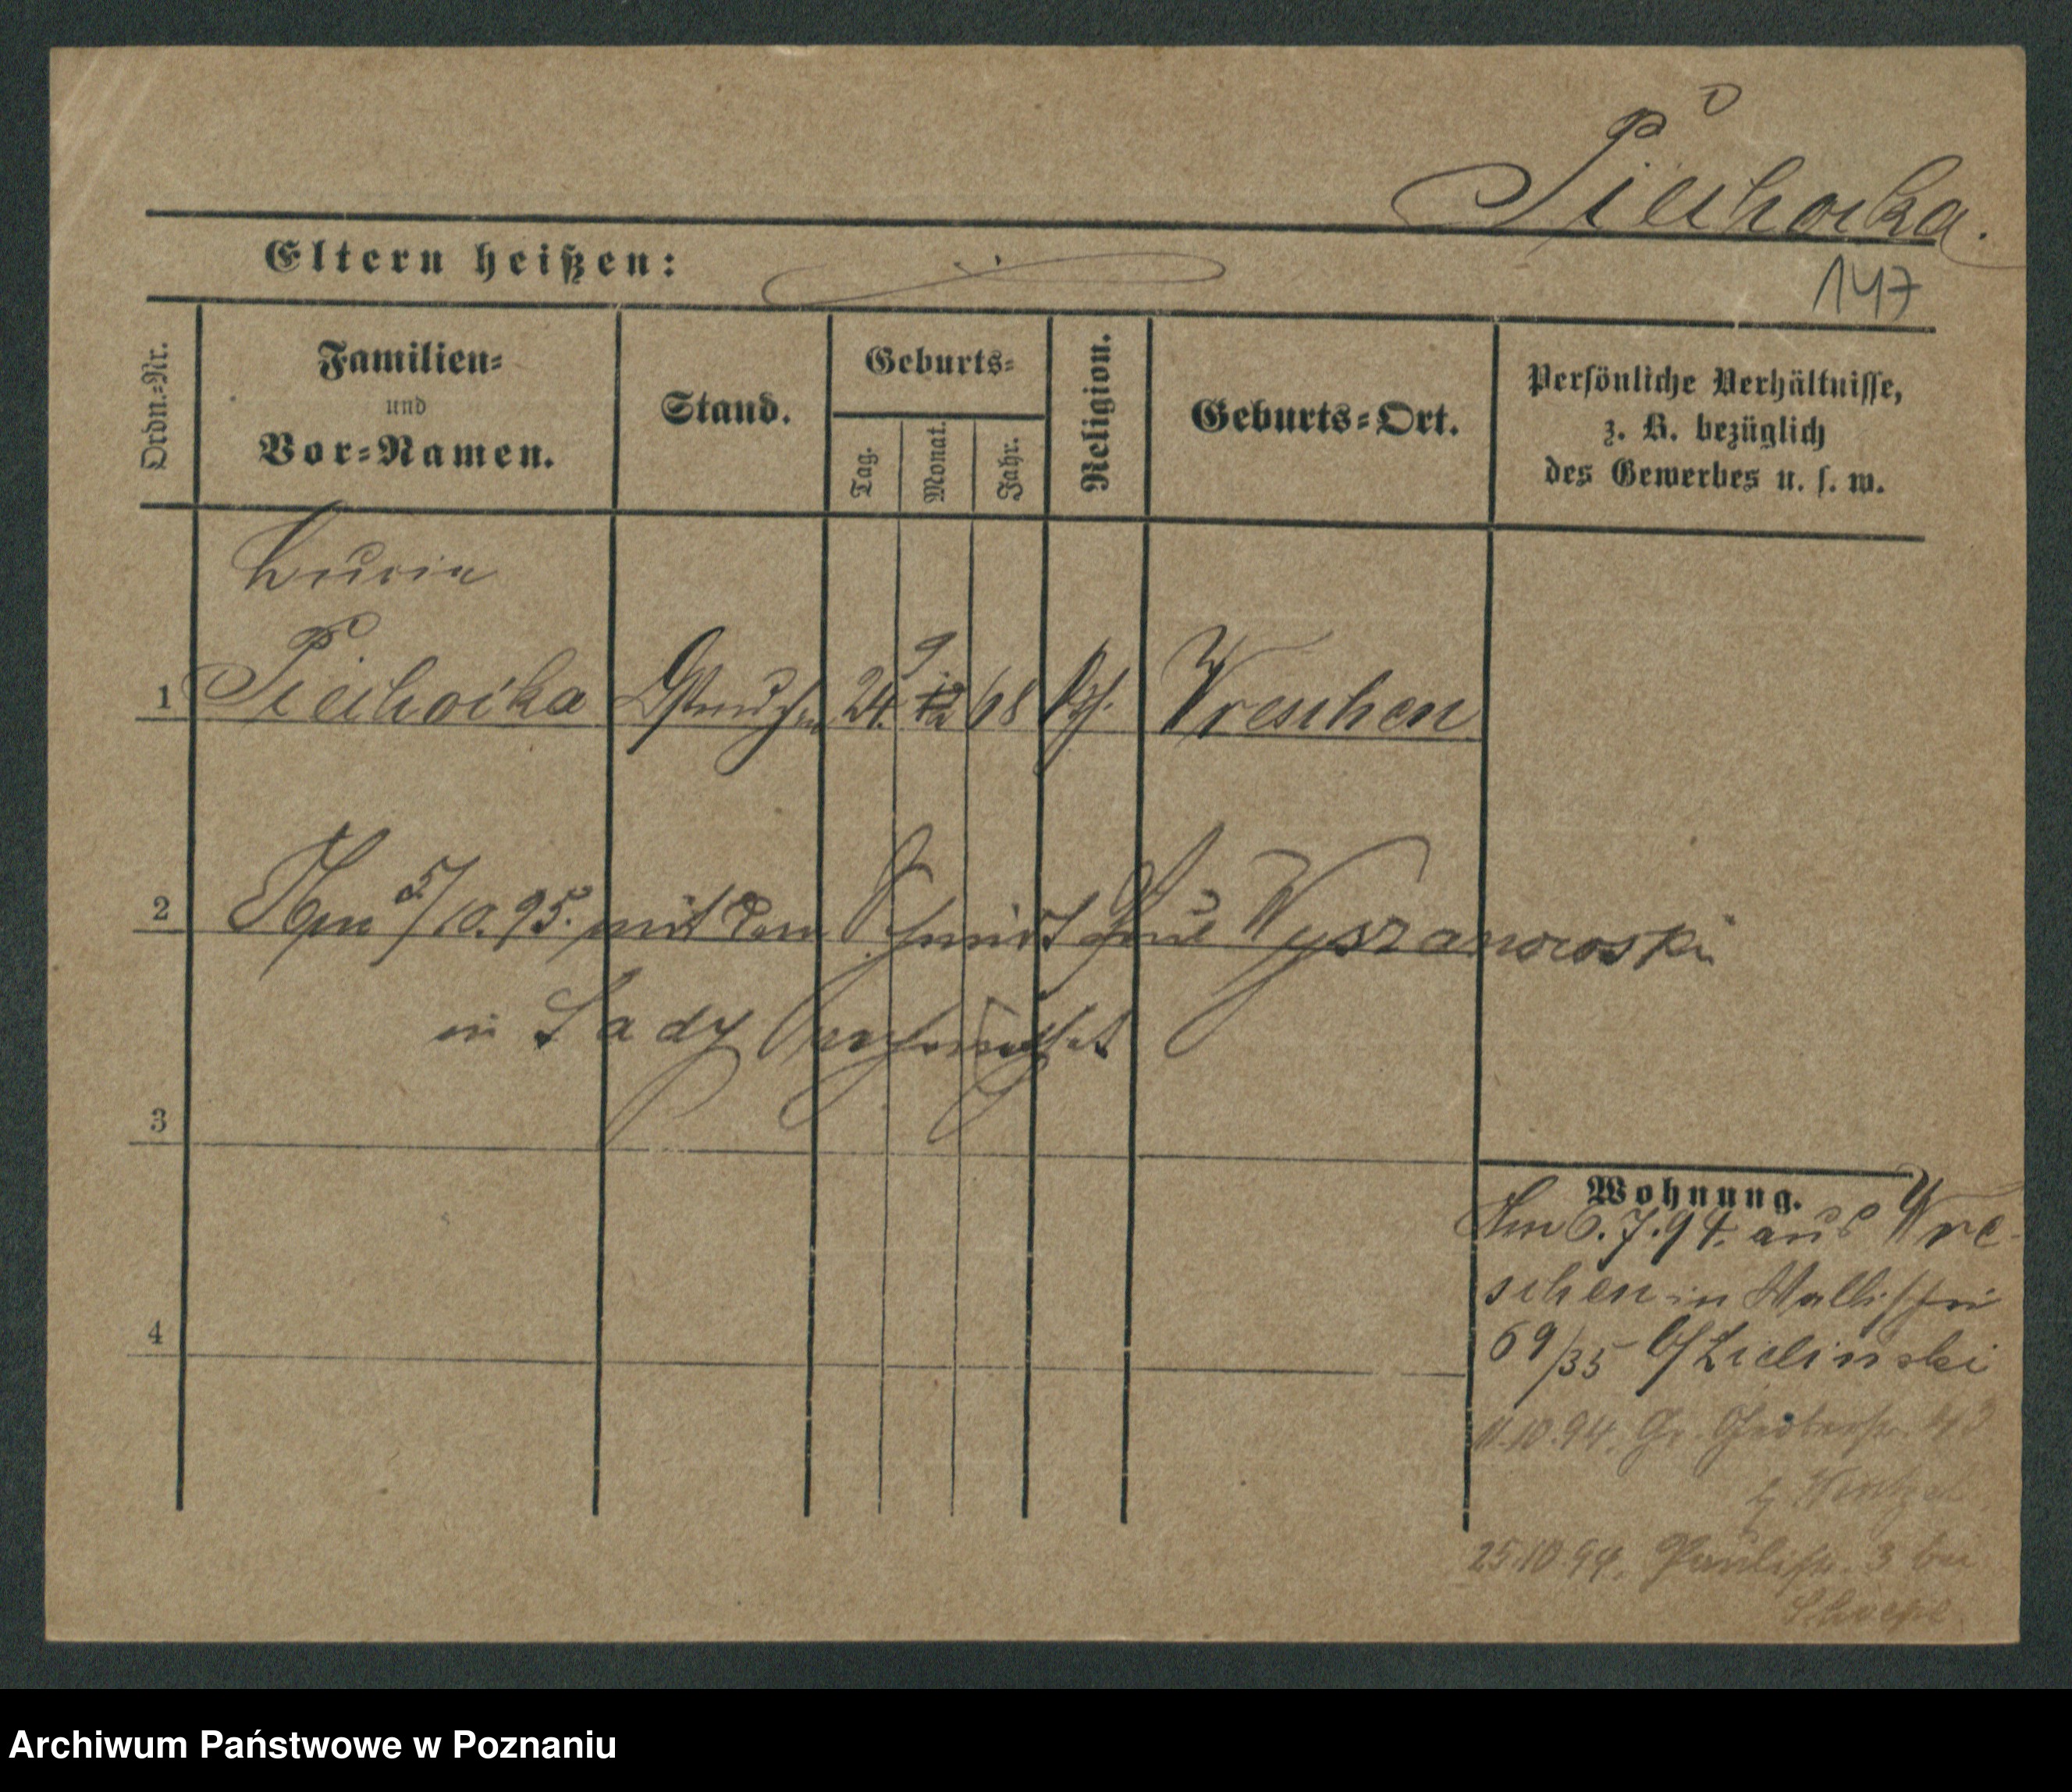 Piechocka.
147
Eltern heißen:
Ordn.-Nr.
Familien-
und
Vor-Namen.
Stand.
Geburts-
Tag.
Monat.
Jahr.
Religion.
Geburts-Ort.
Persönliche Verhältnisse,
z. B. bezüglich
des Gewerbes u. s. w.
1
Piechocka 24. 9 68 kath. Wreschen
2
5/10.95. mit dem Schmidt Wyszanowski
in
3
Wohnung.
Am 6.7.94. aus Wre-
schen in Wallischei
69/35 b/ Zielinski
4
11.10.94. Gr. Gerberstr.
b/
25.10.94. Paulistr. 3 bei
Archiwum Państwowe w Poznaniu